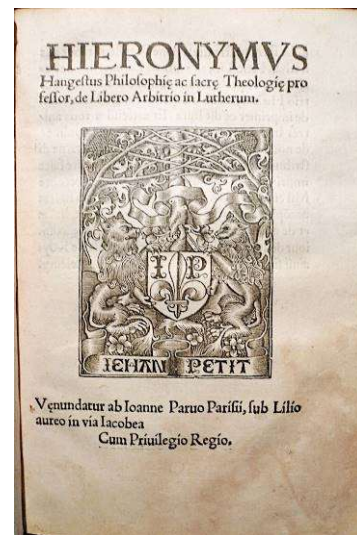 HIERONYMVS
Hangestus Philosophię ac sacrę Theologię pro
fessor, de Libero Arbitrio in Lutherum.
I P
IEHAN PETIT
Vęnundatur ab Ioanne Paruo Parisii, sub Lilio
aureo in via Iacobea
Cum Priuilegio Regio.